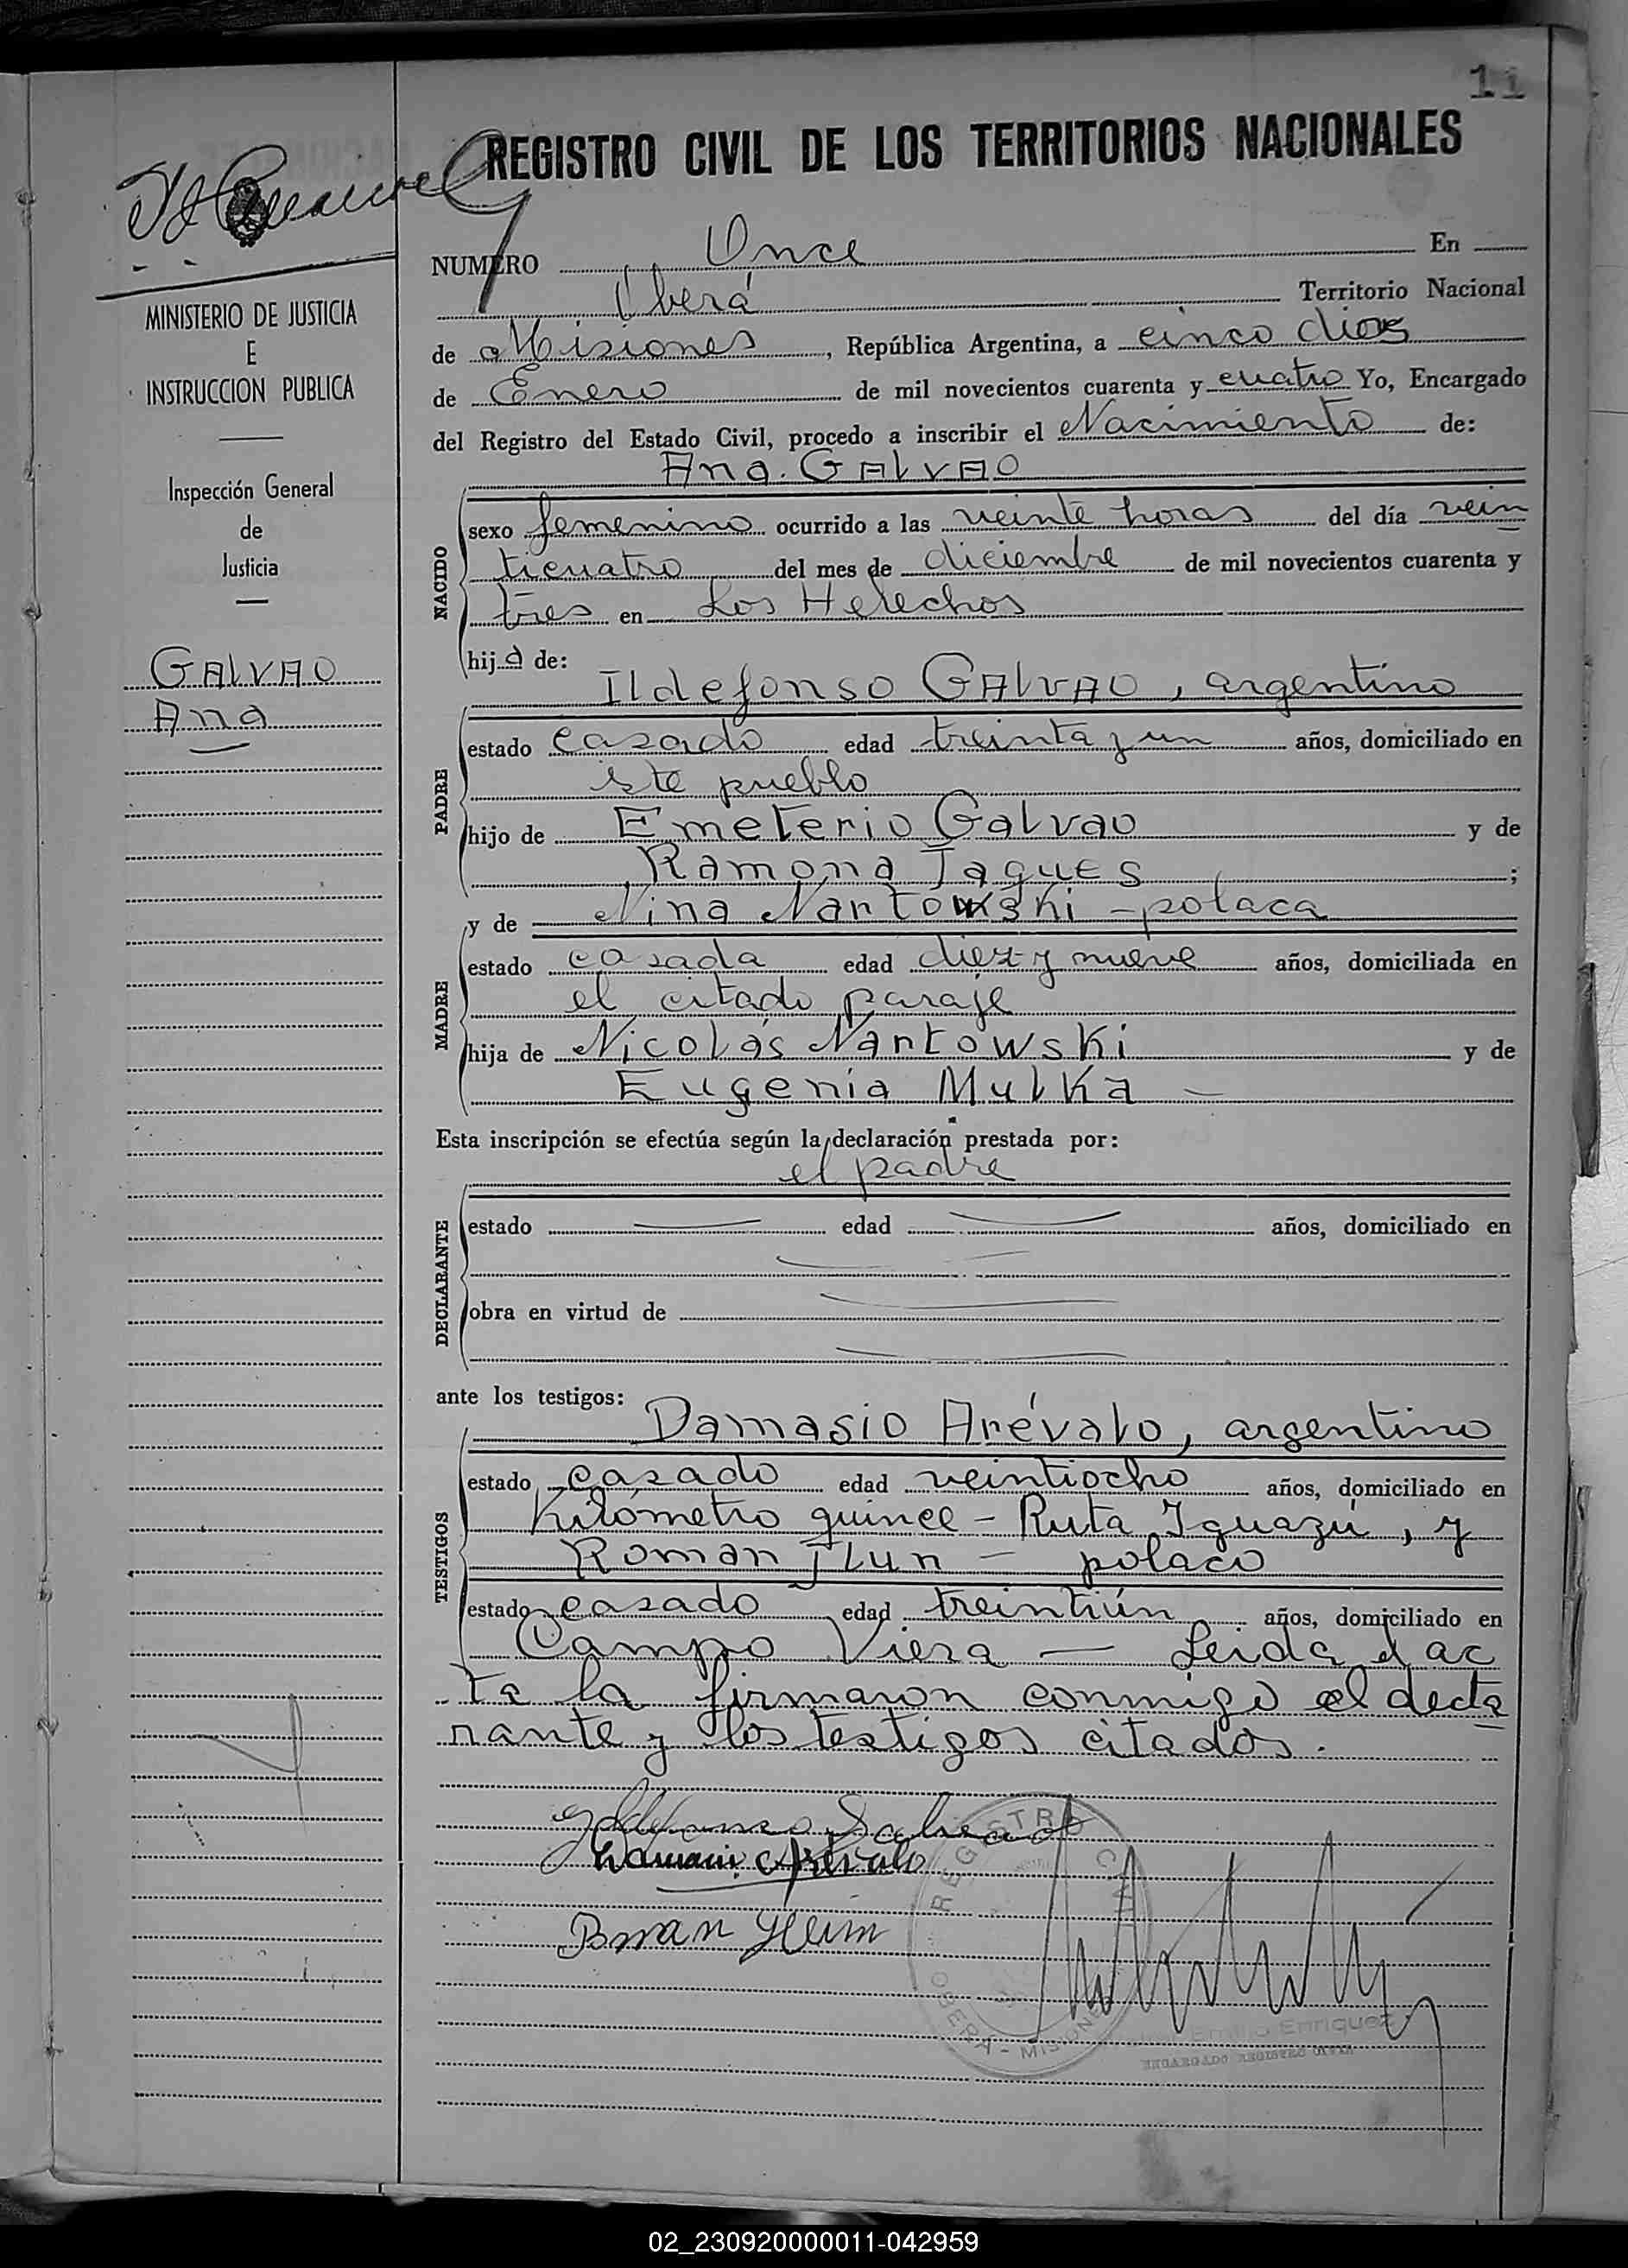 11
REGISTRO CIVIL DE LOS TERRITORIOS NACIONALES
MINISTERIO DE JUSTICIA
E
INSTRUCCION PUBLICA
Inspección General
de
Justicia
GALVAO
Ana
NUMERO Once En
Oberá Territorio Nacional
de Misiones, República Argentina, a cinco dias
de Enero de mil novecientos cuarenta y cuatro Yo, Encargado
del Registro del Estado Civil, procedo a inscribir el Nacimiento de:
Ana. GALVAO
NACIDO
sexo femenino ocurrido a las veinte horas del día vein
ticuatro del mes de diciembre de mil novecientos cuarenta y
tres en Los Helechos
hija de:
Ildefonso GALVAO, argentino
PADRE
estado casado edad treinta y un años, domiciliado en
este pueblo
hijo de Emeterio Galvao y de
Ramona Jaques ;
y de Nina Nartowski - polaca
MADRE
estado casada edad diez y nueve años, domiciliada en
el citado paraje
hija de Nicolás Nartowski y de
Eugenia Mulka -
Esta inscripción se efectúa según la declaración prestada por:
el padre
DECLARANTE
estado edad años, domiciliado en
obra en virtud de
ante los testigos:
Damasio Arévalo, argentino
TESTIGOS
estado casado edad veintiocho años, domiciliado en
Kilómetro quince - Ruta Iguazú, y
Roman - polaco
estado casado edad treintiún años, domiciliado en
Campo Viera — Leida el ac
ta la firmaron conmigo el decla
rante y los testigos citados.
Arévalo
REGISTRO CIVIL
OBERA - MISIONES
Emilio Enriquez
ENCARGADO REGISTRO CIVIL
02_230920000011-042959